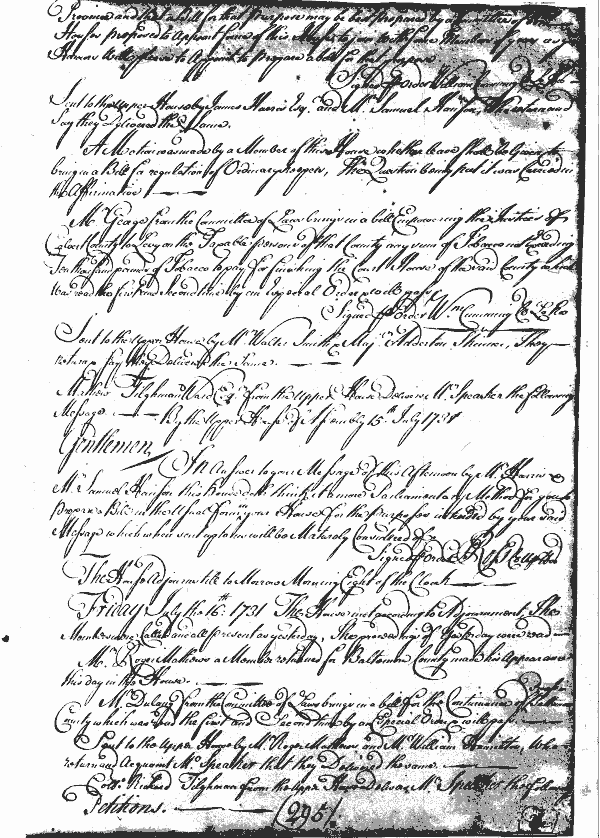 Province and that a bill for that Purpose may be best prepared by a Committee of both
Houses proposes to Appoint some of this House to join with some Members of yours as
Honours will please to Appoint to prepare a bill for that purpose
Signed p Order William Cumming Cl Lo Ho
Sent to the Upper House by James Harris Esq. and Mr. Samuel Hanson, Who return and
Say they Delivered the Same.
A Motion was made by a Member of this House whether leave shall be Given to
bring in a Bill for regulation of Ordinary keepers, The Question being put it was Carried in
the Affirmative
Mr. George from the Committee of Laws brings in a bill Empowering the Justices of
County to Levy on the Taxable persons of that County any sum of Tobacco not exceeding
Ten thousand pounds of Tobacco to pay for finishing the Court House of the said County which
was read the first and second time by an Especial Order & will pass.
Signed p Order Wm Cumming Cl Lo Ho
Sent to the Upper House by Mr. Walter Smith, Maj. Alderton Skinner, They
return & say they Delivered the Same.
Mathew Tilghman Ward Esq. from the Upper House Delivers Mr. Speaker the following
Message. By the Upper House of Assembly 15th July 1731
Gentlemen,
In Answer to your Message of this Afternoon by Mr. Harris &
Mr. Samuel Hanson this House doth think it a more Parliamentary Method for you to
prepare Bills in the Usual form in your House for the Purposes intended by your said
Message which when sent up to us will be Maturely Considered of
Signed p Order
The House Adjourns till to Morrow Morning Eight of the Clock
Friday July the 16th 1731 The House met according to Adjournment, The
Members were Called and all present as yesterday, The proceedings of Yesterday were read
Mr. Roger Mathews a Member returned for Baltimore County made his Appearance
this day in the House.
Mr. Dulany from the Committee of Laws brings in a bill for the Continuance of
County which was read the first and Second time by an Especial Order & will pass.
Sent to the Upper House by Mr. Roger Mathews and Mr. William Hamilton, Who
return and Acquaint Mr. Speaker that they Delivered the same.
Colo. Richard Tilghman from the Upper House Delivers Mr. Speaker the following
Petitions.
(295)